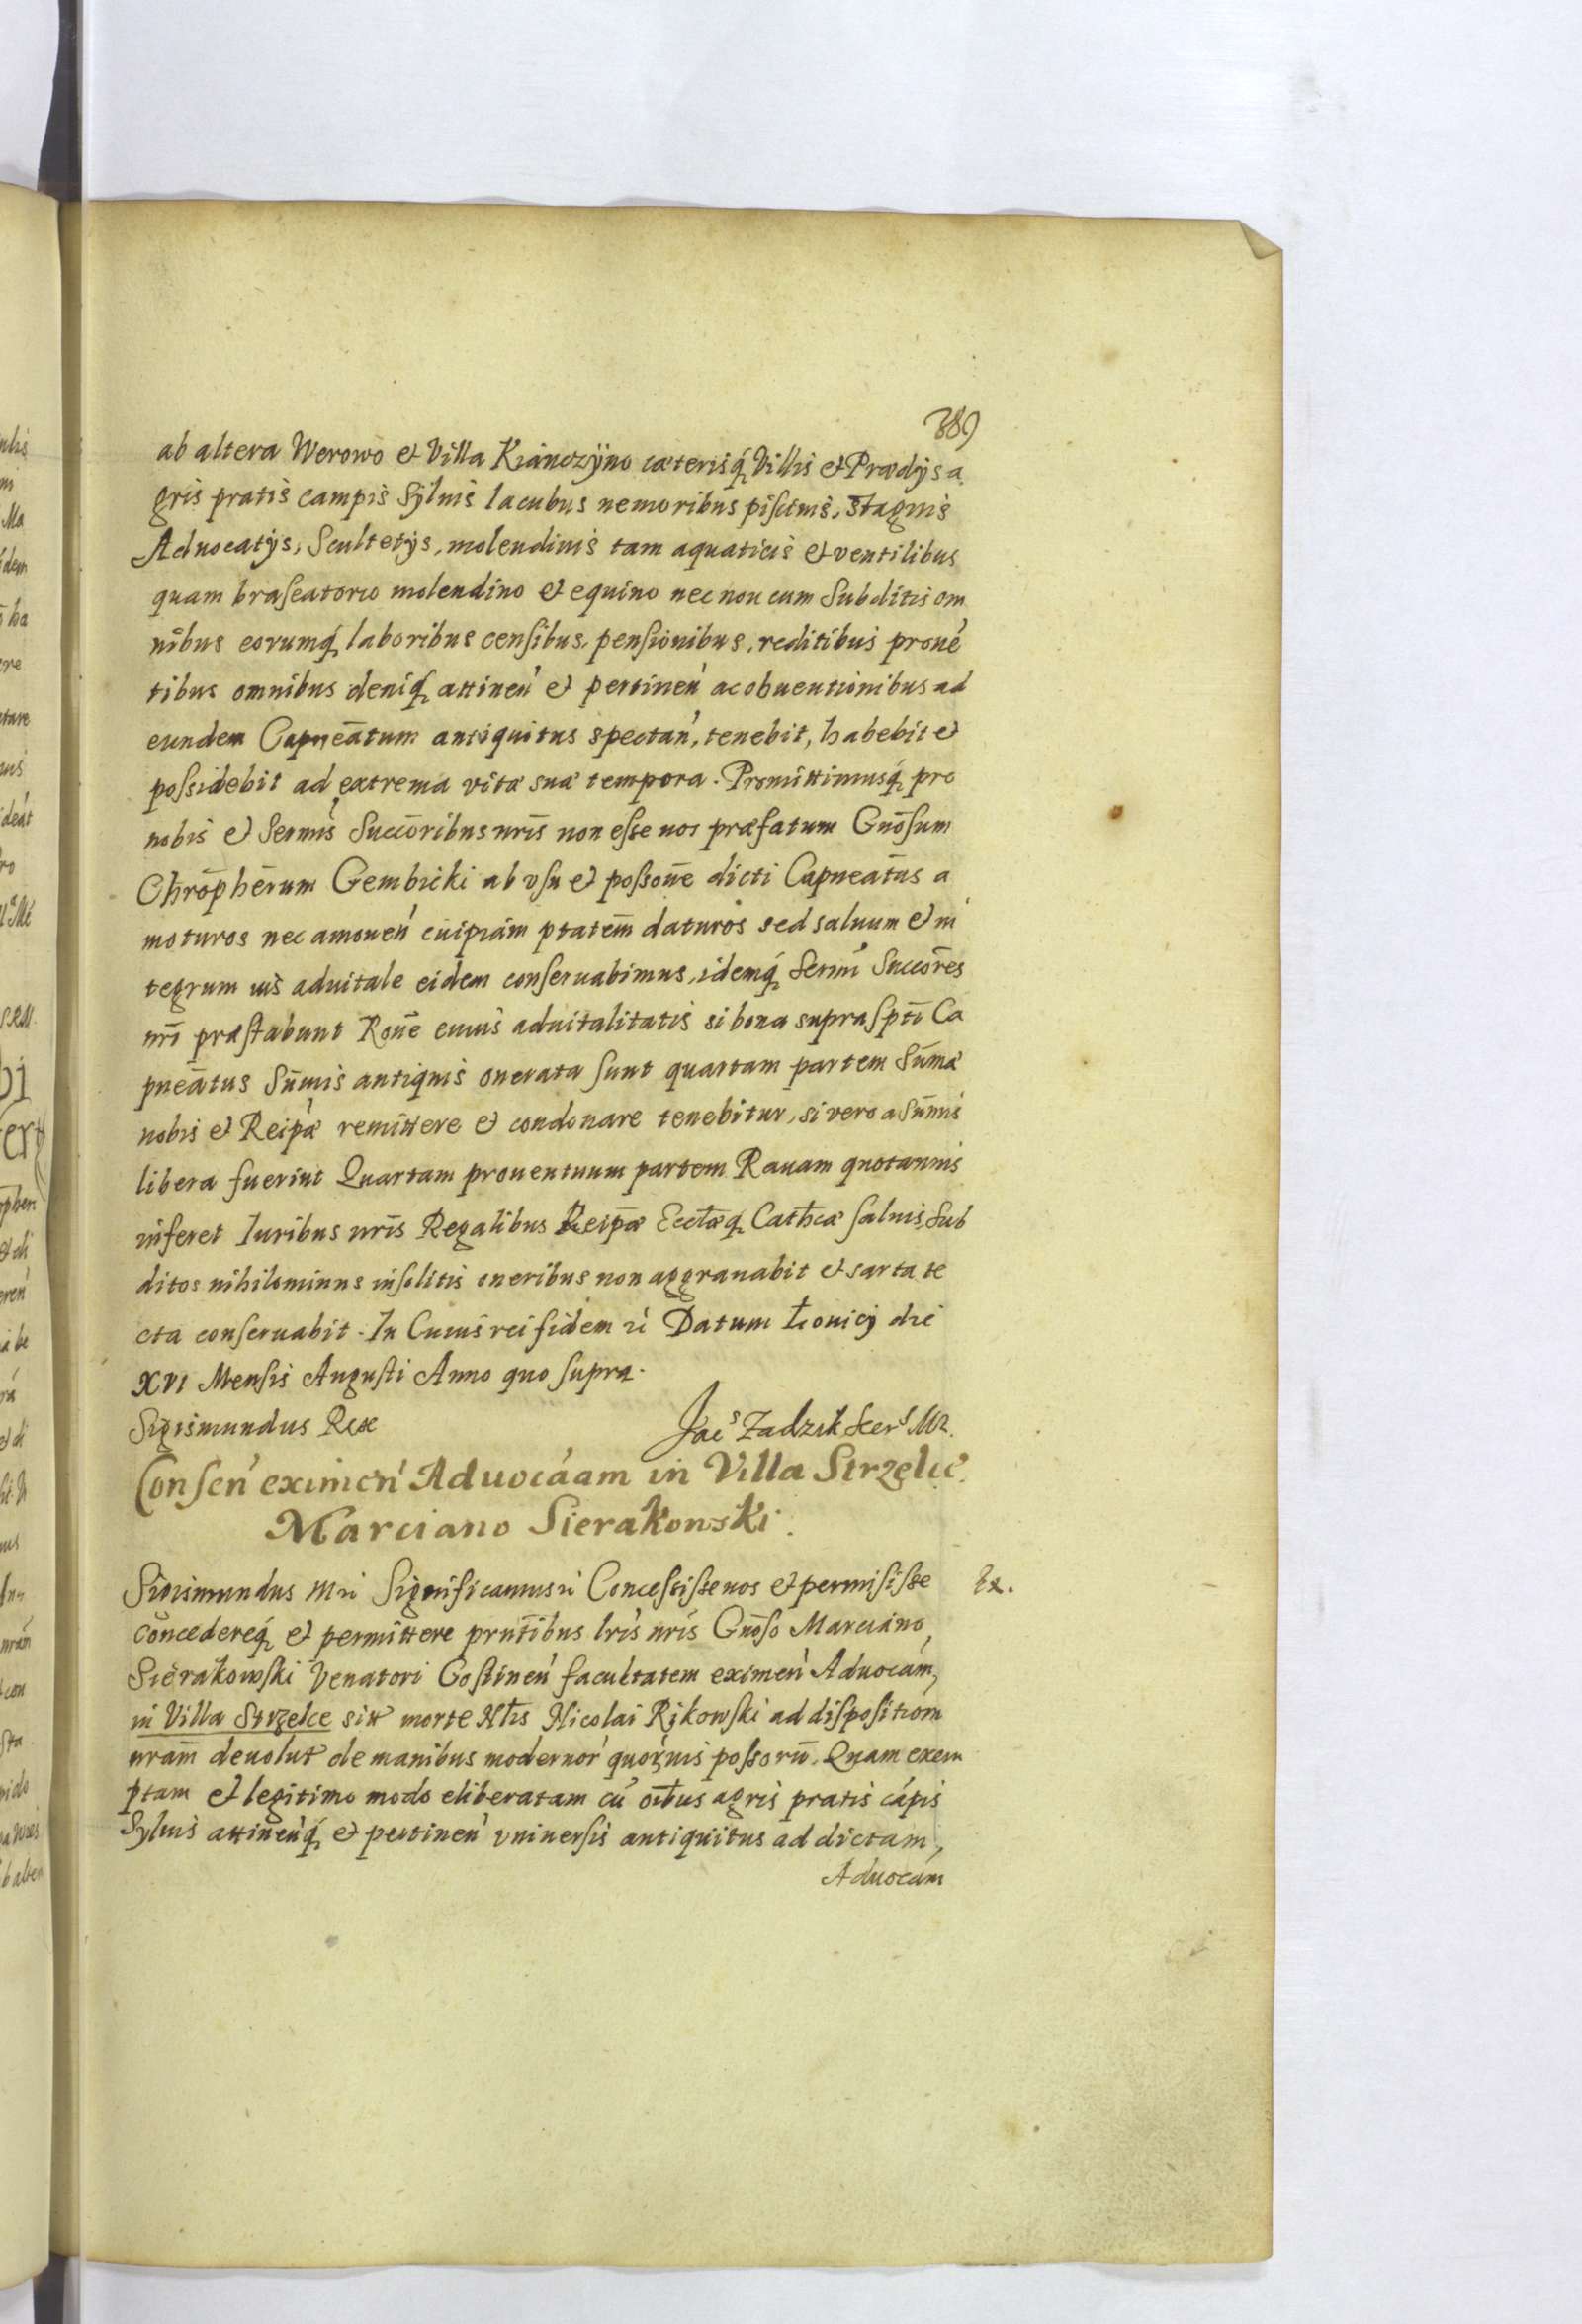 389
ab altera Werowo et Villa Kiànczÿno cæterisq́ Villis et Prædijs a
gris pratis campis syluis lacubus nemoribus piscinis, stagnis
Aduocatijs, Scultetijs, molendinis tam aquaticis et ventilibus
quam braseatorio molendino et equino nec non cum Subditis om
nibus eorumq́ laboribus censibus, pensionibus, reditibus prouē
tibus omnibus deniq́ attineń et pertineń ac obuentionibus ad
eundem Capneātum antiquitus spectań, tenebit, habebit et
possidebit ad extrema vitæ suæ tempora. Promittimusq́ pro
nobis et Sermis Succōribus nrīs non esse nos præfatum Gnōsum
Chrōphērum Gembicki ab vsu et possōne dicti Capneātus a
moturos nec amoueń cuipiam ptatēm daturos sed saluum et in
tegrum ius aduitale eidem conseruabimus, idemq́ Sermi Succōres
nrī præstabunt Rōne cuius aduitalitatis si bona suprasptī Ca
pneātus Sūmis antiquis onerata sunt quartam partem Sūmæ
nobis et Reipæ remittere et condonare tenebitur, si vero a Sūmis
libera fuerint Quartam prouentuum partem Rauam quotannis
inferet Iuribus nrīs Regalibus Reipæ Ecclæq́ Cathcæ saluis, Sub
ditos nihilominus insolitis oneribus non aggrauabit et sarta te
cta conseruabit. In Cuius rei fidem ii Datum Łouicij die
XVI Mensis Augusti Anno quo supra.
Sigismundus Rex
Jacs Zadzik Secrs Mr.
Conseń eximeń Aduocáam in Villa Strzelce
Marciano Sierakowski.
Sigismundus mri Significamus ii Concessisse nos et permisisse
Ex.
concedereq́ et permittere prntibus lrīs nrīs Gnōso Marciano
Sierakowski Venatori Gostineń facultatem eximeń Aduocám,
in Villa Strzelce sitt morte Nlis Nicolai Rijkowski ad disposition
nram̄ deuolut de manibus modernor quorúuis possorū. Quam exem
ptam et legitimo modo eliberatam cū oībus agris pratis cápis
Syluis attineńq́ et pertineń vniuersis antiquitus ad dictam,
Aduocám